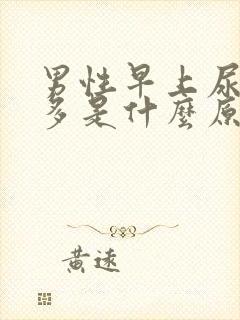 男性早上尿
多是什麼原
黃遠